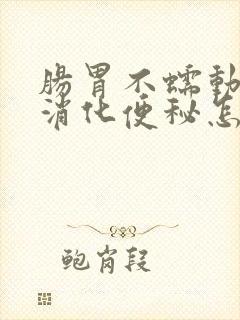 腸胃不蠕動
消化便秘怎
鲍岗段